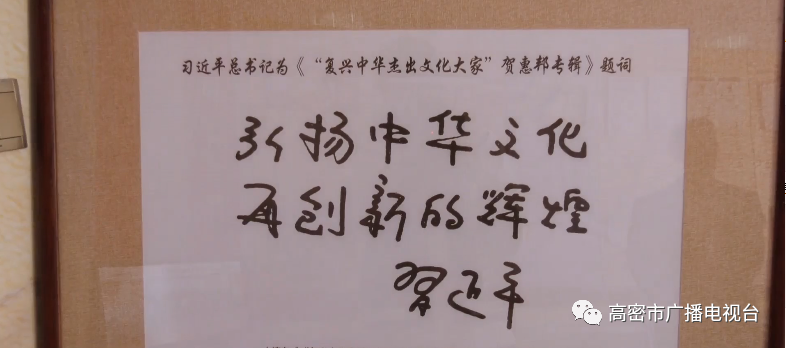 习近平总书记为《“复兴中华杰出文化大家”贺惠邦专辑》题词
弘扬中华文化
再创新的辉煌
习近平
高密市广播电视台